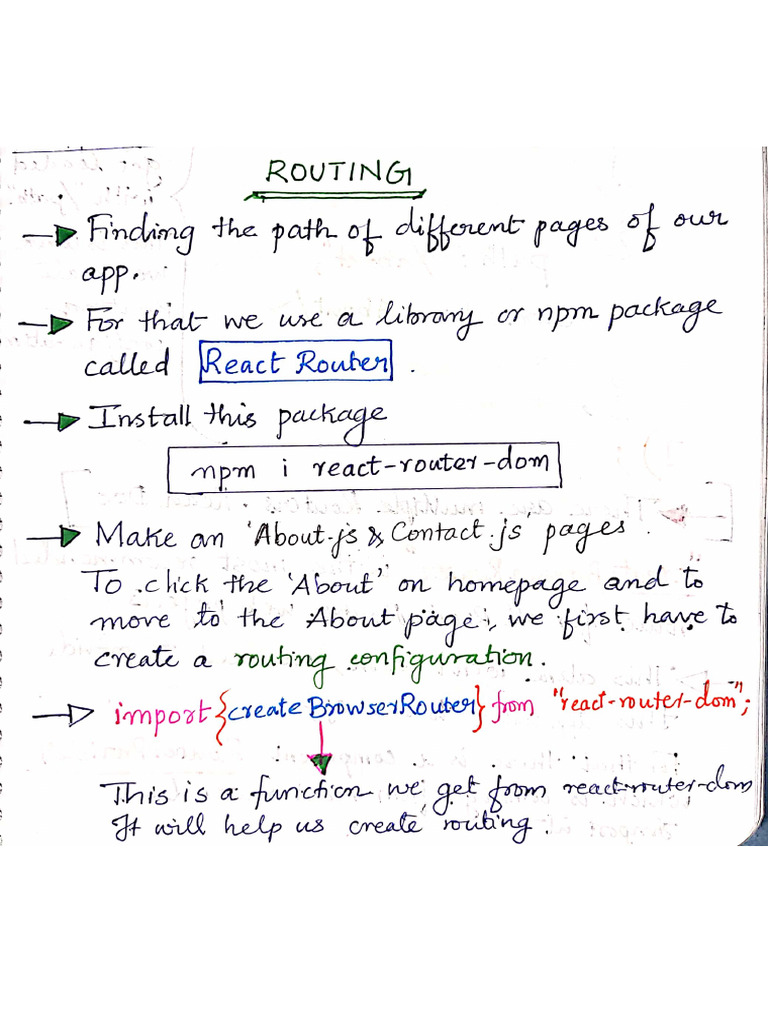 ROUTING
Finding the path of different pages of our
app.
For that we use a library or npm package
called React Router .
Install this package
npm i react-router-dom
Make an 'About.js & Contact.js pages.
To click the 'About' on homepage and to
move to the 'About' page, we first have to
create a routing configuration.
import {createBrowserRouter} from "react-router-dom";
This is a function we get from react-router-dom
It will help us create routing.